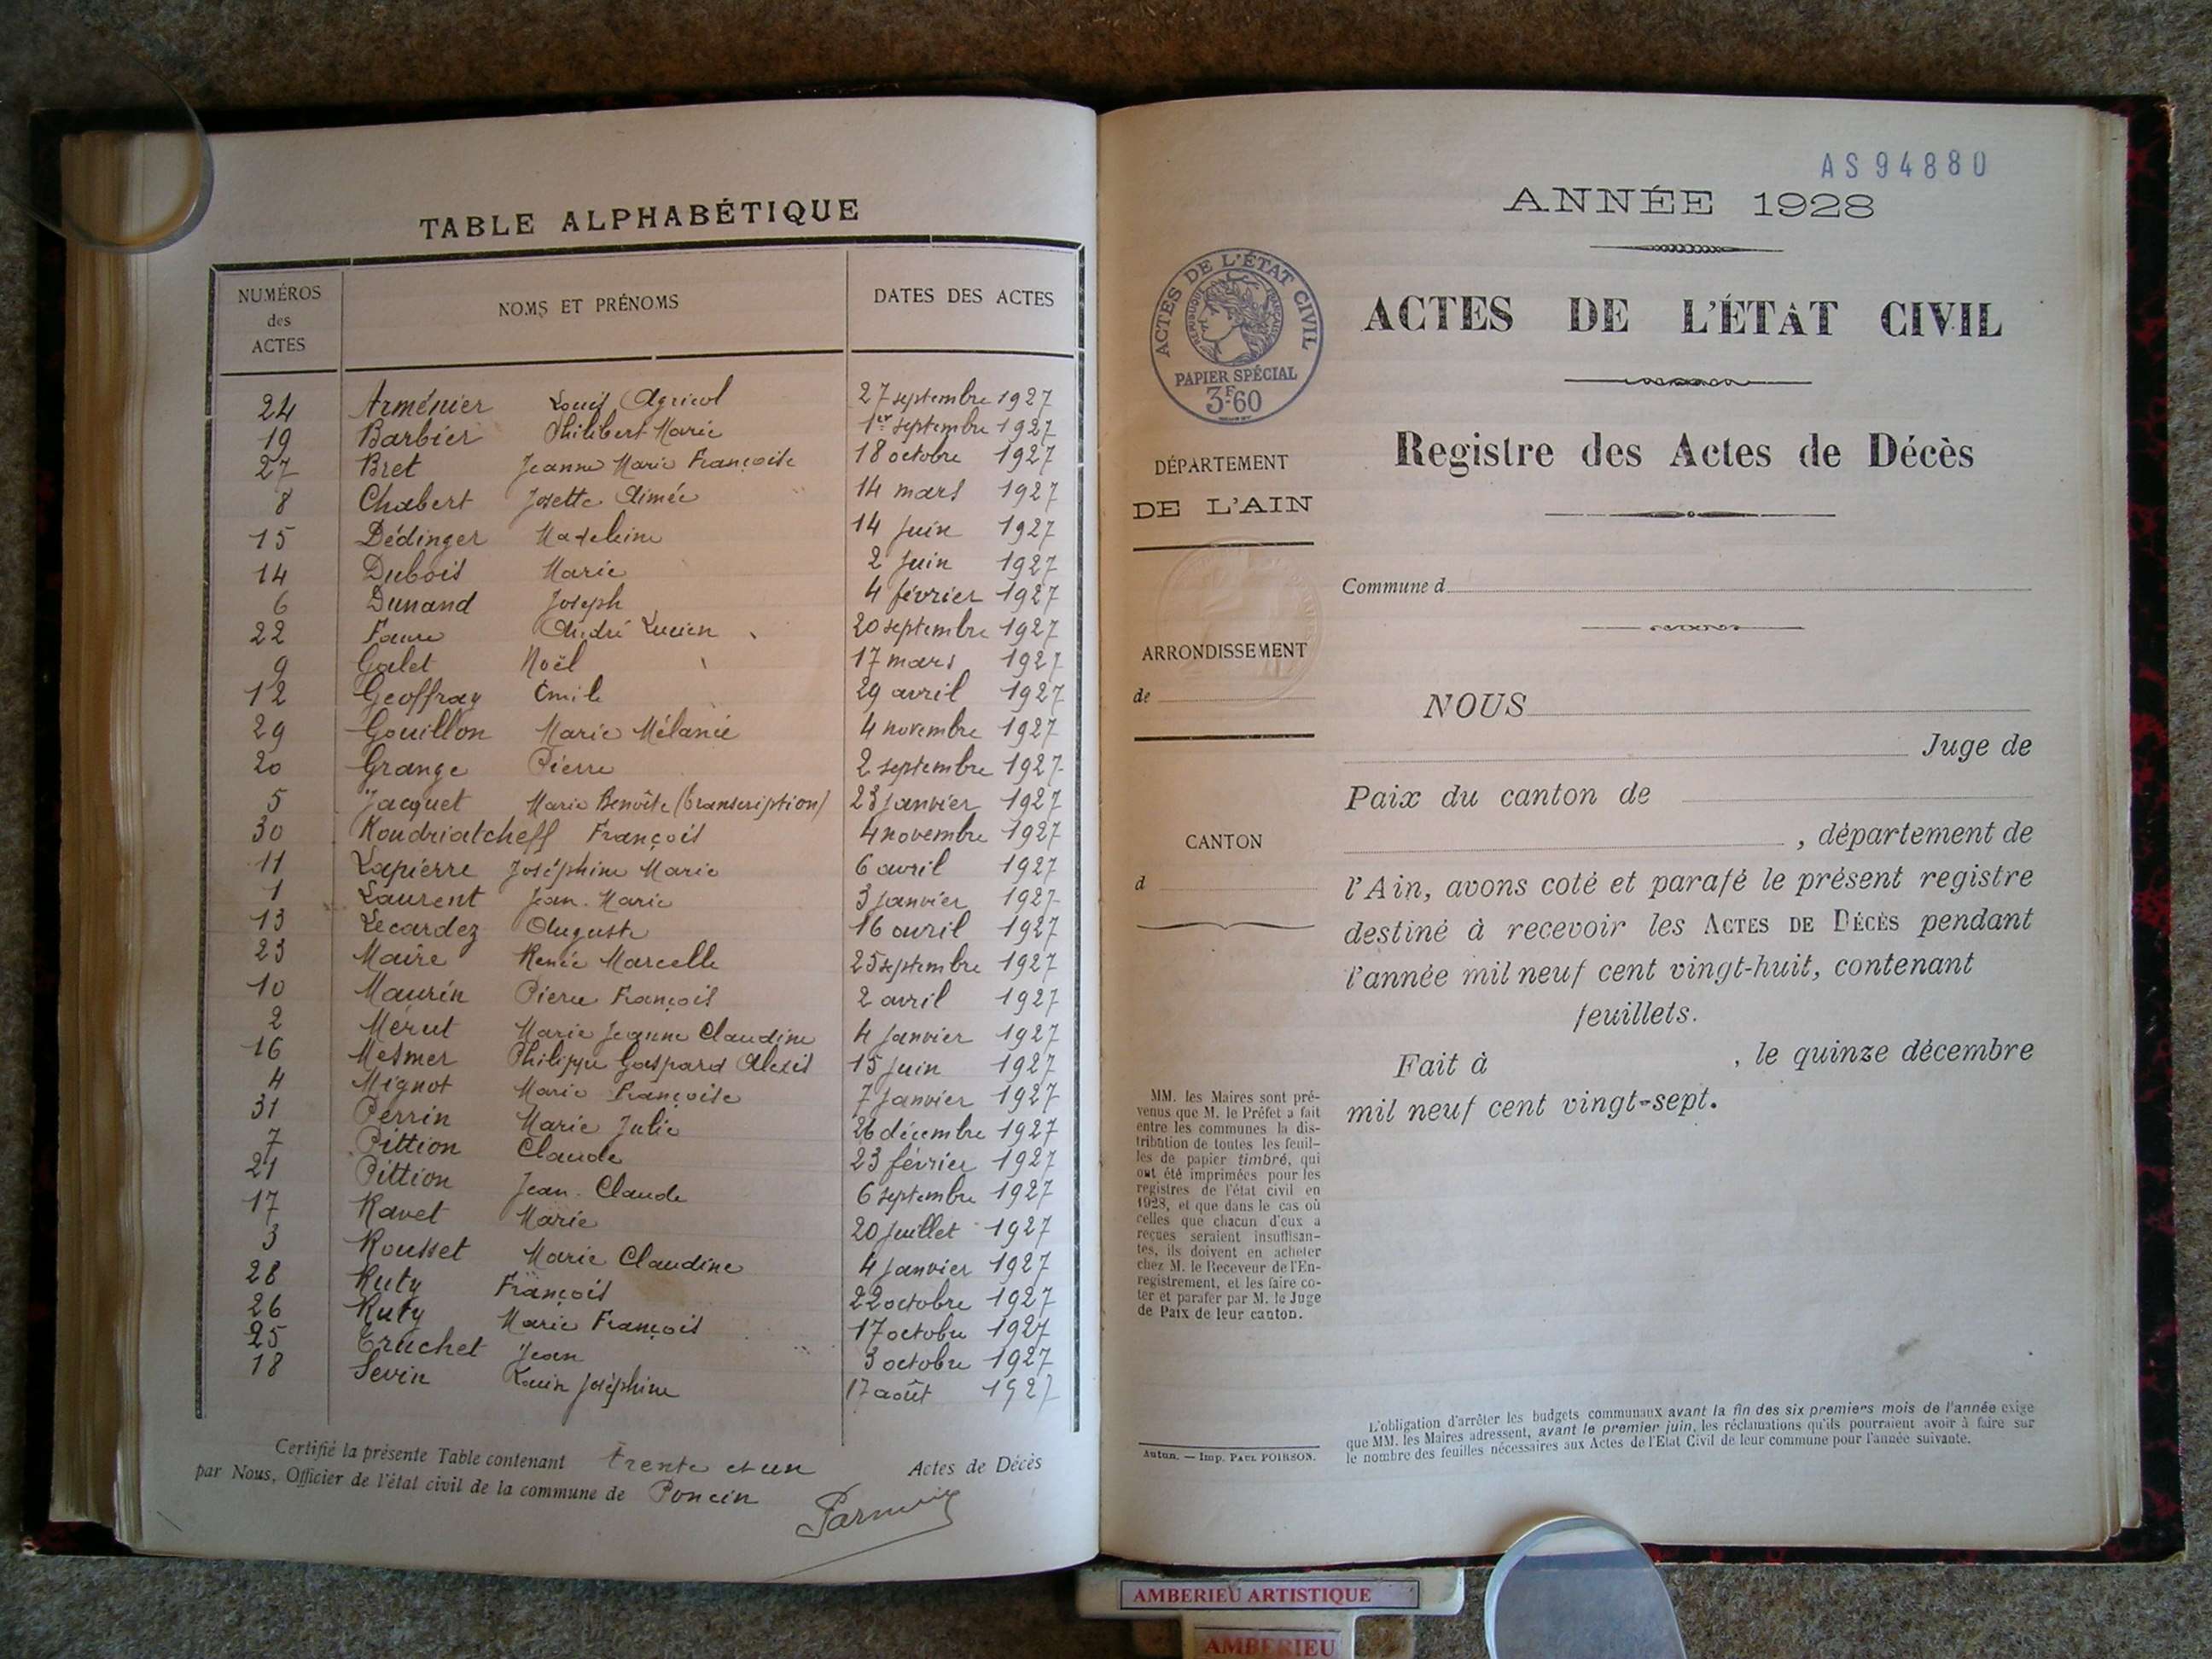 TABLE ALPHABÉTIQUE
NUMÉROS des ACTES NOMS ET PRÉNOMS DATES DES ACTES
24 Arménier Louis Agricol 27 septembre 1927
19 Barbier Philibert Marie 1er septembre 1927
27 Bret Jeanne Marie Françoise 18 octobre 1927
8 Chabert Josette Aimée 14 mars 1927
15 Dédinger Madeleine 14 juin 1927
14 Dubois Marie 2 juin 1927
6 Dunand Joseph 4 février 1927
22 Faure André Lucien 20 septembre 1927
9 Galet Noël 17 mars 1927
12 Geoffray Emile 29 avril 1927
29 Gouillon Marie Mélanie 4 novembre 1927
20 Grange Pierre 2 septembre 1927
5 Jacquet Marie Benoîte (transcription) 23 janvier 1927
30 Koudriatcheff François 4 novembre 1927
11 Lapierre Joséphine Marie 6 avril 1927
1 Laurent Jean-Marie 3 janvier 1927
13 Lecardez Auguste 16 avril 1927
23 Maire Renée Marcelle 25 septembre 1927
10 Maurin Pierre François 2 avril 1927
2 Mérut Marie Jeanne Claudine 4 janvier 1927
16 Mesmer Philippe Gaspard Alexis 15 juin 1927
4 Mignot Marie Françoise 7 janvier 1927
31 Perrin Marie Julie 26 décembre 1927
7 Pittion Claude 23 février 1927
21 Pittion Jean-Claude 6 septembre 1927
17 Ravet Marie 20 juillet 1927
3 Rousset Marie Claudine 4 janvier 1927
28 Ruty François 22 octobre 1927
26 Ruty Marie François 17 octobre 1927
25 Truchet Jean 3 octobre 1927
18 Sevin Joséphine 17 août 1927
Certifié la présente Table contenant trente et un Actes de Décès
par Nous, Officier de l'état civil de la commune de Poncin
AS94880
ANNÉE 1928
ACTES DE L'ÉTAT CIVIL
RÉPUBLIQUE FRANÇAISE
PAPIER SPÉCIAL
3F60
ACTES DE L'ÉTAT CIVIL
Registre des Actes de Décès
DÉPARTEMENT
DE L'AIN
Commune d
ARRONDISSEMENT
de
NOUS
Juge de
Paix du canton de
, département de
CANTON
d
l'Ain, avons coté et parafé le présent registre
destiné à recevoir les ACTES DE DÉCÈS pendant
l'année mil neuf cent vingt-huit, contenant
feuillets.
Fait à , le quinze décembre
mil neuf cent vingt-sept.
MM. les Maires sont pré-
venus que M. le Préfet a fait
entre les communes la dis-
tribution de toutes les feuil-
les de papier timbré, qui
ont été imprimées pour les
registres de l'état civil en
1928, et que dans le cas où
celles que chacun d'eux a
reçues seraient insuffisan-
tes, ils doivent en acheter
chez M. le Receveur de l'En-
registrement, et les faire co-
ter et parafer par M. le Juge
de Paix de leur canton.
L'obligation d'arrêter les budgets communaux avant la fin des six premiers mois de l'année exige
que MM. les Maires adressent, avant le premier juin, les réclamations qu'ils pourraient avoir à faire sur
le nombre des feuilles nécessaires aux Actes de l'Etat Civil de leur commune pour l'année suivante.
Autun. — Imp. PAUL POIRSON.
AMBERIEU ARTISTIQUE
AMBERIEU